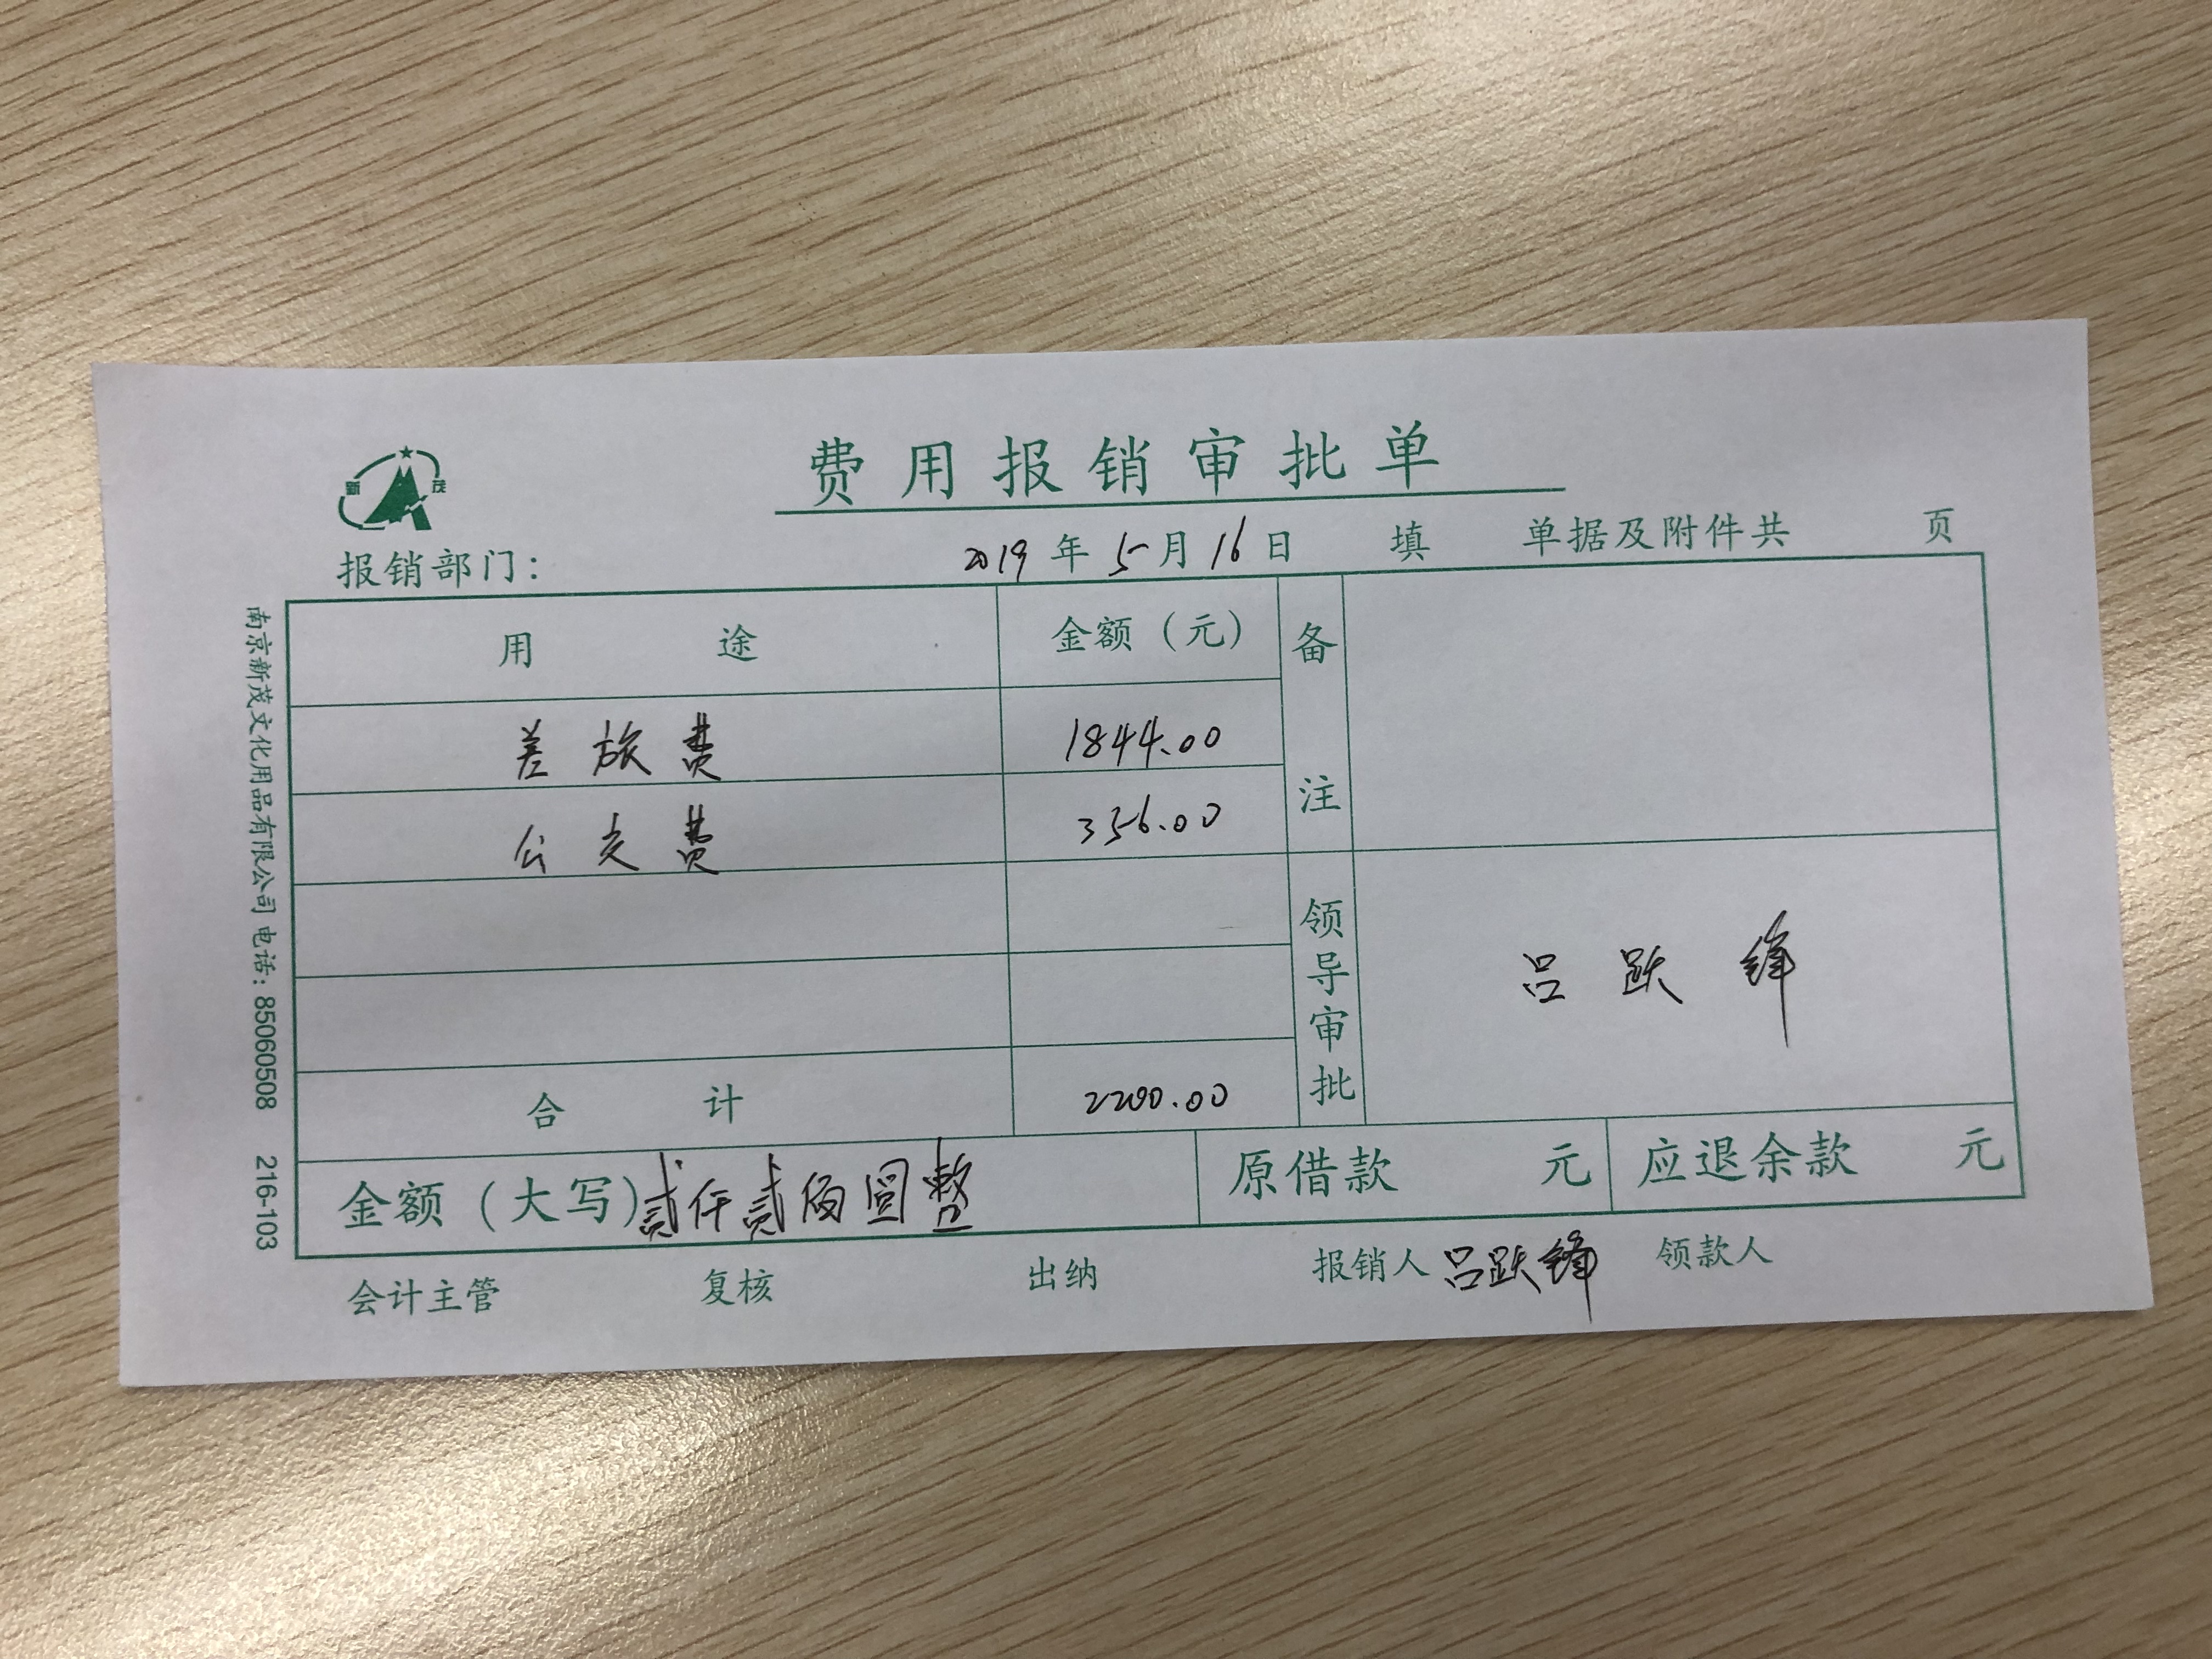 费用报销审批单
报销部门： 2019年5月16日 填 单据及附件共 页
用途 金额（元） 备注
差旅费 1844.00
公交费 356.00
领导审批 吕跃
合计 2200.00
金额（大写）贰仟贰佰圆整 原借款 元 应退余款 元
会计主管 复核 出纳 报销人 吕跃 领款人
南京新茂文化用品有限公司 电话：85060508 216-103